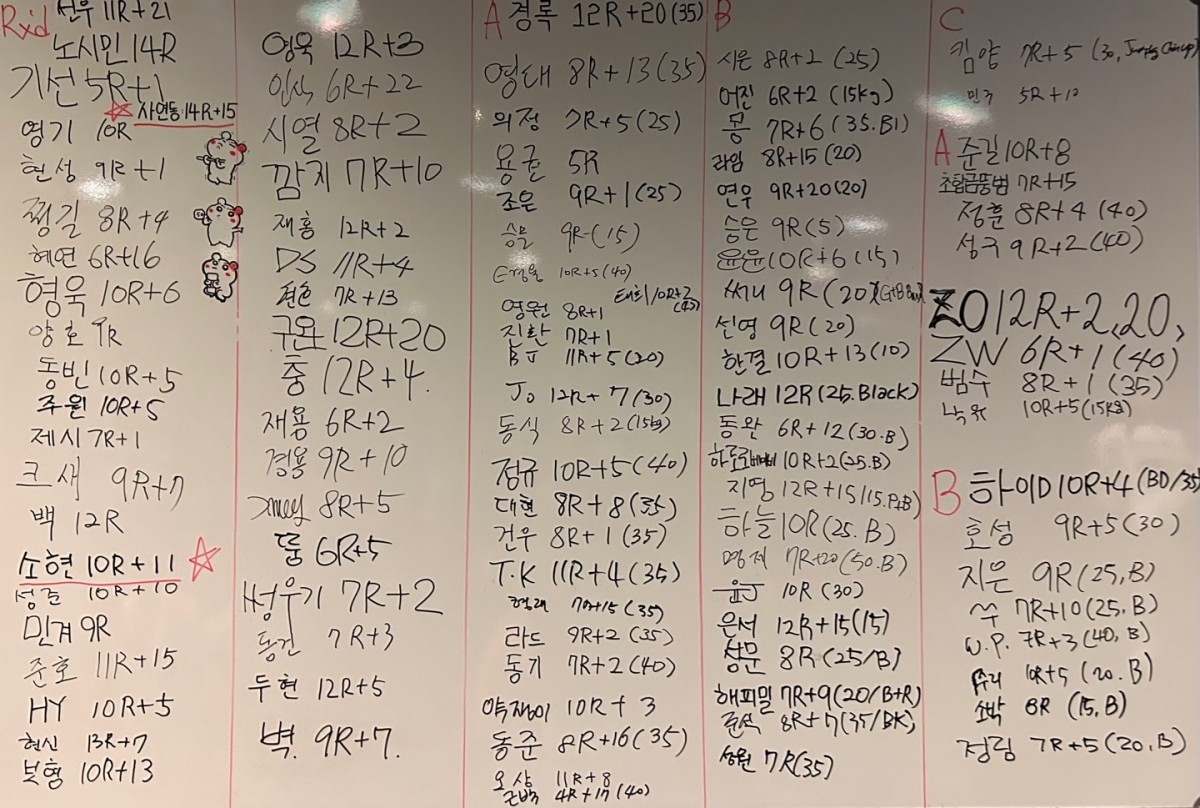 Rxd
선우 11R+21
노시민 14R
기선 5R+1
사연동 14R+15
영기 10R
현성 9R+1
쩡길 8R+4
혜연 6R+16
형욱 10R+6
양호 9R
동빈 10R+5
주원 10R+5
제시 7R+1
크새 9R+7
백 12R
소현 10R+11
10R+10
민겸 9R
준호 11R+15
HY 10R+5
현신 13R+7
보형 10R+13
영욱 12R+3
인식 6R+22
시열 8R+2
깜지 7R+10
재홍 12R+2
DS 11R+4
7R+13
구완 12R+20
충 12R+4.
재용 6R+2
경용 9R+10
8R+5
뚬 6R+5
7R+2
동건 7R+3
두현 12R+5
벽. 9R+7.
A 경록 12R+20(35)
영태 8R+13(35)
의정 7R+5(25)
용균 5R
조은 9R+1(25)
9R-(15)
10R+5(40)
태희 10R+2 (40)
영원 8R+1
진환 7R+1
BJ 11R+5(20)
Jo 12R+7(30)
동식 8R+2(15kg)
정규 10R+5(40)
대현 8R+8(35)
건우 8R+1(35)
T.K 11R+4(35)
형래 7R+15(35)
라드 9R+2(35)
동기 7R+2(40)
약쟁이 10R+3
동준 8R+16(35)
오상 11R+8
근백 4R+17(40)
B
시은 8R+2(25)
어진 6R+2(15kg)
몽 7R+6(35.B)
라임 8R+15(20)
연우 9R+20(20)
승은 9R(5)
윤윤 10R+6(15)
써니 9R(20)
선영 9R(20)
한결 10R+13(10)
나래 12R(25.Black)
동완 6R+12(30.B)
10R+2(25.B)
지명 12R+15
하늘 10R(25.B)
명제 7R+20(50.B)
윤J 10R(30)
은서 12R+15(15)
상문 8R(25/B)
해피밀 7R+9(20/B+R)
준석 8R+7(35/BK)
성원 7R(35)
C
킴양 7R+5(30,
민주 5R+10
A 준길 10R+8
초황금똥범 7R+15
정훈 8R+4(40)
성국 9R+2(40)
ZO 12R+2,20,
ZW 6R+1(40)
범수 8R+1(35)
낙유 10R+5(15kg)
B 하이D 10R+4(BD/35)
호성 9R+5(30)
지은 9R(25,B)
쑤 7R+10(25,B)
W.P. 7R+3(40,B)
10R+5(20.B)
소박 8R(15,B)
정림 7R+5(20,B)